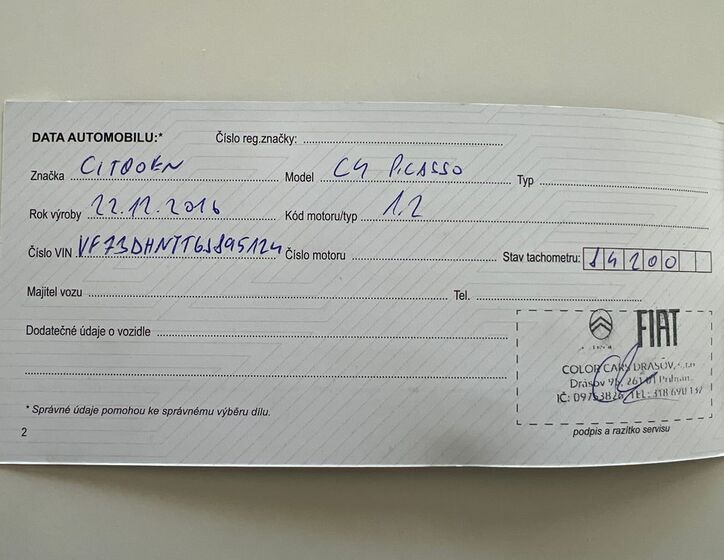 DATA AUTOMOBILU:* Číslo reg.značky:
Značka CITROEN Model C4 PICASSO Typ
Rok výroby 22.12.2016 Kód motoru/typ 1.2
Číslo VIN VF73DHNYTGJ895124 Číslo motoru Stav tachometru: 84200
Majitel vozu Tel.
Dodatečné údaje o vozidle
FIAT
COLOR CARS DRASOV, s.r.o
Drásov 95, 261 01 Příbram,
IČ: 09753826, TEL: 318 690 137
* Správné údaje pomohou ke správnému výběru dílu.
2
podpis a razítko servisu